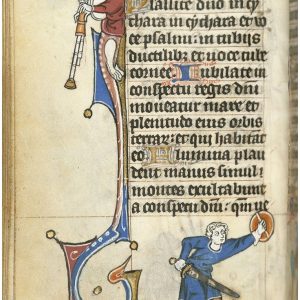 Psallite dno in cy
thara in cythara et vo
ce psalmi in tubis
ductilib et voce tube
cornee Iubilate in
conspectu regis dni
moveatur mare et
plenitudo eius orbis
terrar et qui habitat
eo Flumina plau
dent manus simul
montes exultabunt
a conspectu dni qm ve